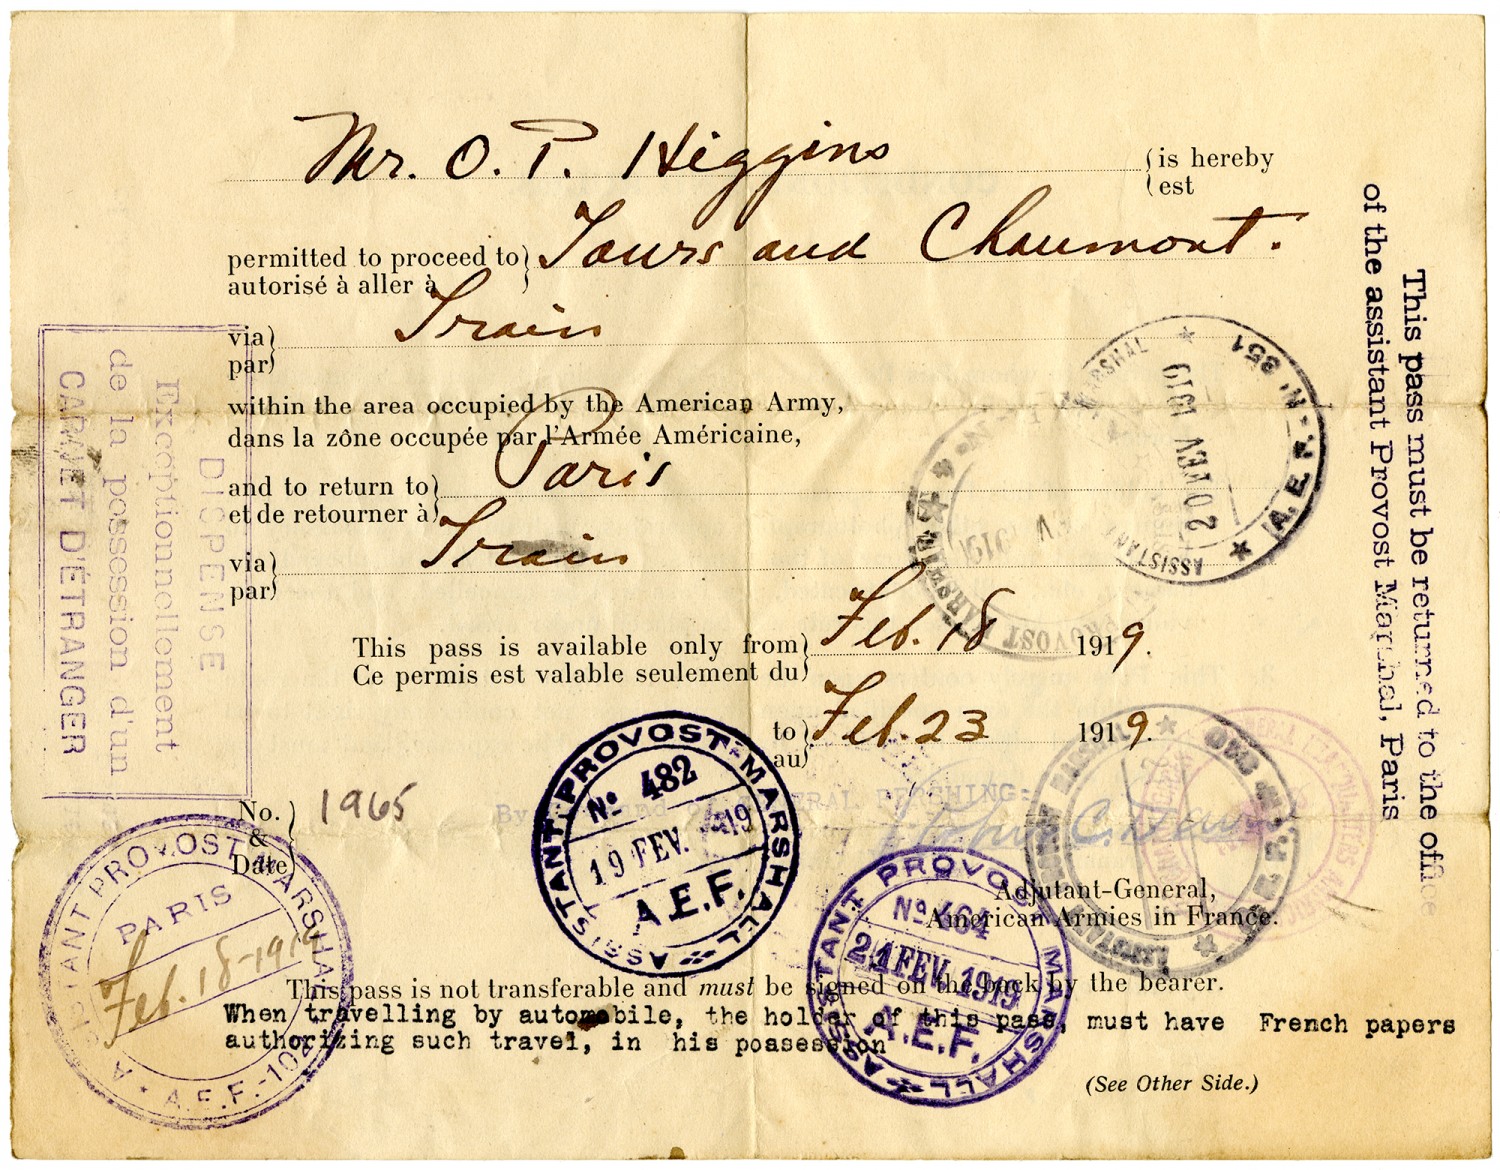 Mr. O. P. Higgins { is hereby
{ est
permitted to proceed to } Tours and Chaumont.
autorisé à aller à }
via } Train
par }
within the area occupied by the American Army,
dans la zône occupée par l'Armée Américaine,
and to return to } Paris
et de retourner à }
via } Train
par }
This pass is available only from } Feb. 18 1919.
Ce permis est valable seulement du }
to } Feb. 23 1919.
au }
No. } 1965
&
Date }
By GENERAL PERSHING:
Adjutant-General,
American Armies in France.
This pass is not transferable and must be signed on the back by the bearer.
When travelling by automobile, the holder of this pass, must have French papers
authorizing such travel, in his poasession
(See Other Side.)
This pass must be returned to the office
of the assistant Provost Marshal, Paris
DISPENSE
Exceptionnellement
de la possession d'un
CARNET D'ÉTRANGER
ASSISTANT PROVOST MARSHAL
PARIS
Feb. 18-1919
A.E.F.-102
ASSISTANT-PROVOST-MARSHALL
No 482
19 FEV. 1919
A.E.F.
ASSISTANT PROVOST MARSHALL
No 464
21 FEV. 1919
A.E.F.
ASSISTANT MARSHAL
20 FEV 1919
A.E.F. - N° 351
PROVOST MARSHAL
ASSISTANT MARSHAL